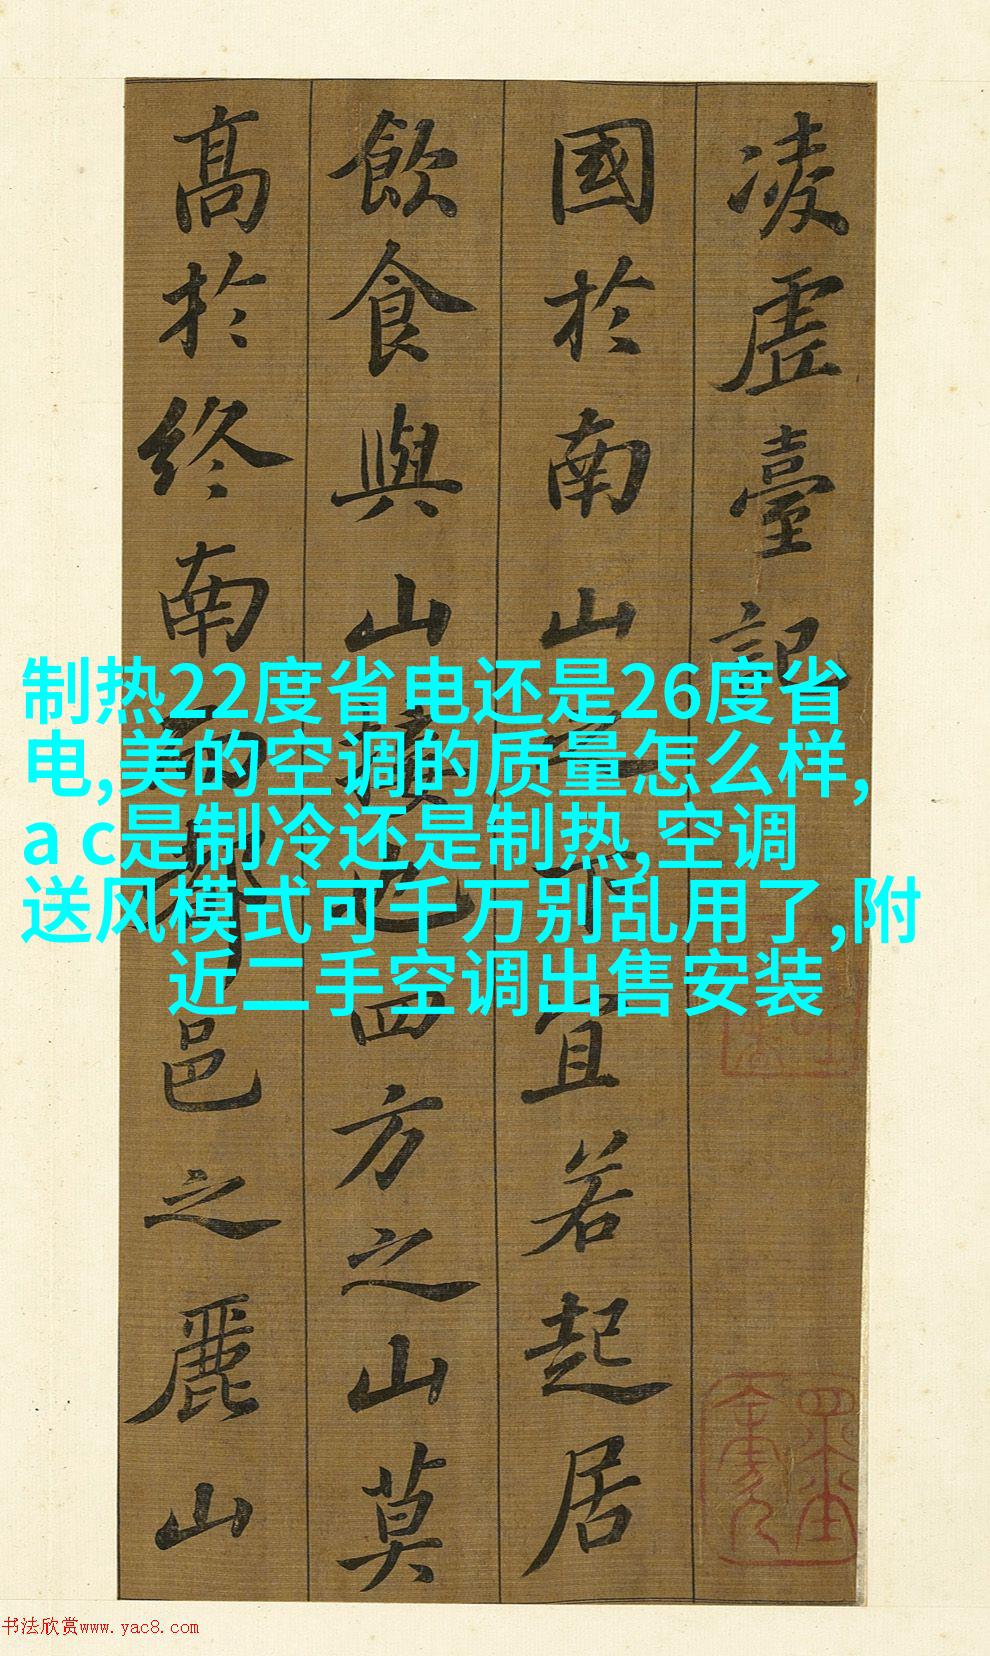 凌虛臺記
國於南山之下宜若起居
飲食與山接也四方之山莫
高於終南而都邑之麗山
制热22度省电还是26度省
电,美的空调的质量怎么样,
a c是制冷还是制热,空调
送风模式可千万别乱用了,附
近二手空调出售安装
书法欣赏www.yac8.com